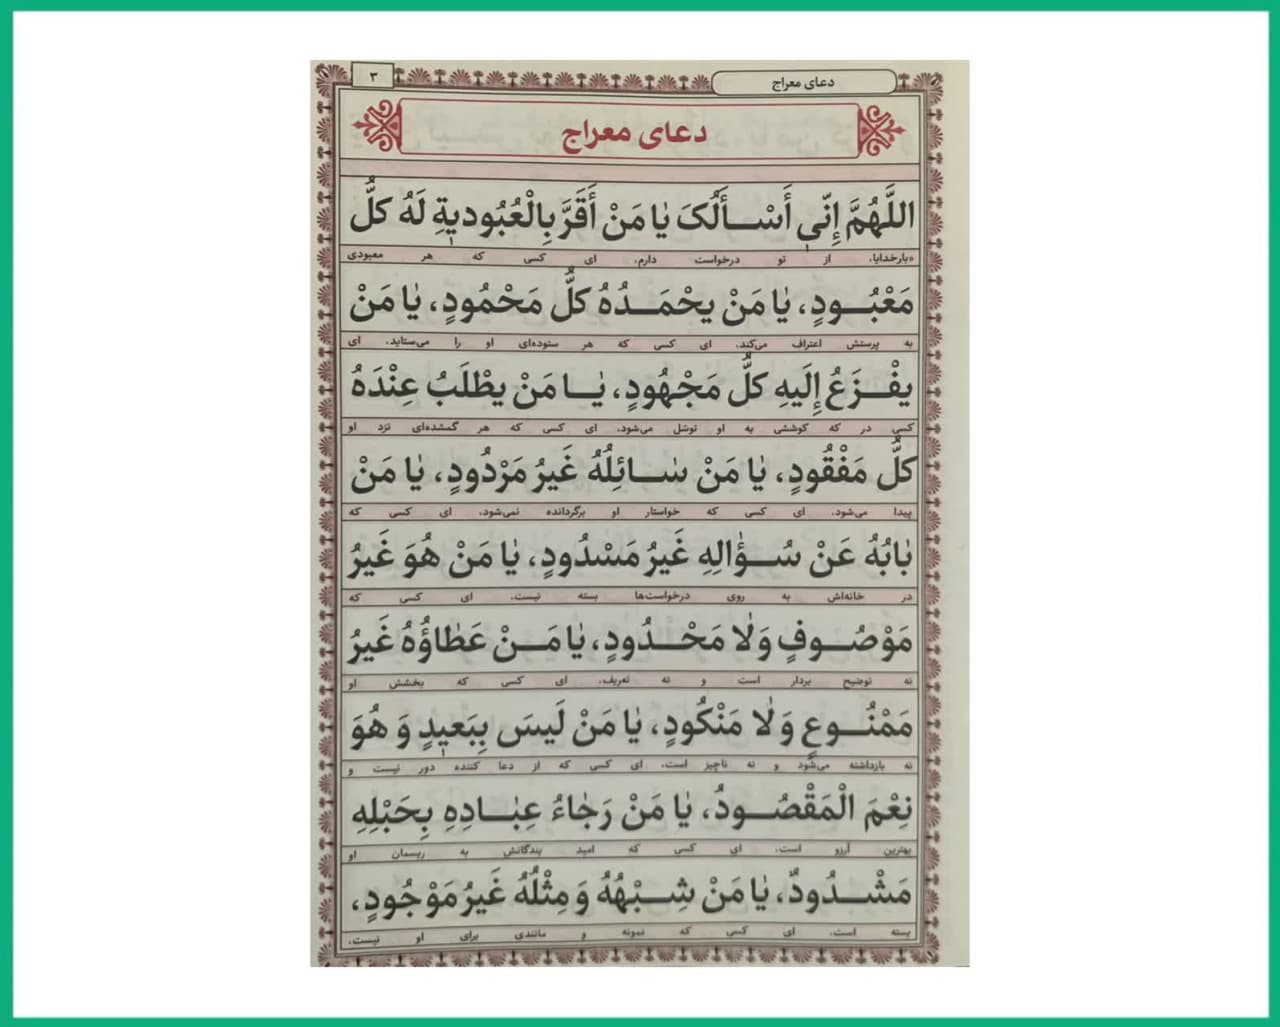 دعای معراج
۳
دعای معراج
اللَّهُمَّ إِنّىٖ أَسْـأَلُکَ يٰا مَنْ أَقَرَّ بِالْعُبُوديةِ لَهُ كلُّ
«بارخدایا، از تو درخواست دارم، ای کسی که هر معبودی
مَعْبُـودٍ، يٰا مَنْ يحْمَـدُهُ كلُّ مَحْمُودٍ، يٰا مَنْ
به پرستش اعتراف می‌کند، ای کسی که هر ستوده‌ای او را می‌ستاید، ای
يفْـزَعُ إِلَيهِ كلُّ مَجْهُودٍ، يٰـا مَنْ يطْلَبُ عِنْدَهُ
کسی در که کوششی به او توسّل می‌شود، ای کسی که هر گمشده‌ای نزد او
كلُّ مَفْقُودٍ، يٰا مَنْ سٰـائِلُهُ غَيرُ مَرْدُودٍ، يٰا مَنْ
پیدا می‌شود، ای کسی که خواستار او برگردانده نمی‌شود، ای کسی که
بٰابُهُ عَنْ سُـؤٰالِهِ غَيرُ مَسْدُودٍ، يٰا مَنْ هُوَ غَيرُ
در خانه‌اش به روی درخواست‌ها بسته نیست، ای کسی که
مَوْصُـوفٍ وَلٰا مَحْـدُودٍ، يٰا مَـنْ عَطٰاؤُهُ غَيرُ
نه توضیح بردار است و نه تعریف، ای کسی که بخشش او
مَمْنُـوعٍ وَ لٰا مَنْكُودٍ، يٰا مَنْ لَيسَ بِبَعيٖدٍ وَ هُوَ
نه بازداشته می‌شود و نه ناچیز است، ای کسی که از دعا کننده دور نیست و
نِعْمَ الْمَقْصُـودُ، يٰا مَنْ رَجٰاءُ عِبٰـادِهِ بِحَبْلِهِ
بهترین آرزو است، ای کسی که امید بندگانش به ریسمان او
مَشْـدُودٌ، يٰا مَنْ شِـبْهُهُ وَ مِثْلُهُ غَيرُ مَوْجُودٍ،
بسته است، ای کسی که نمونه و مانندی برای او نیست،